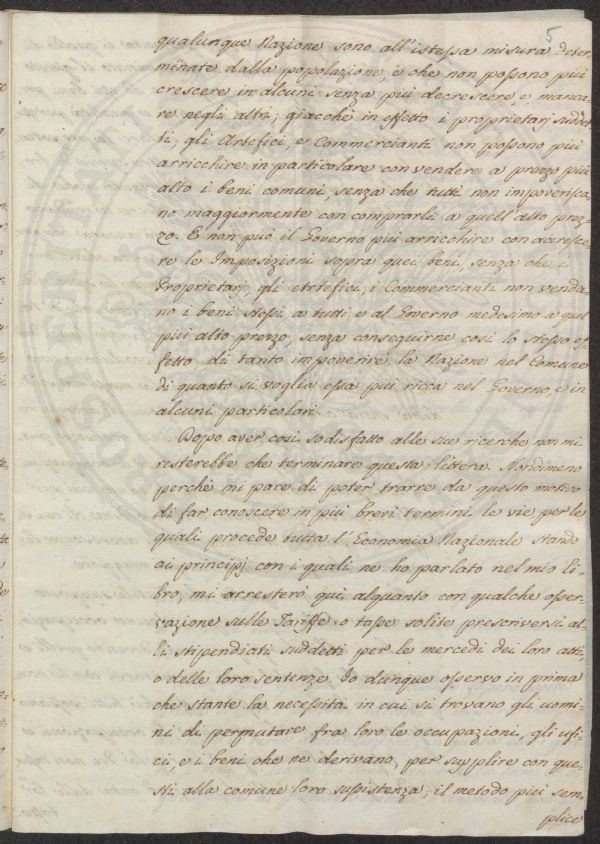 5
qualunque Nazione sono all'istessa misura deter-
minate dalla popolazione, e che non possono più
crescere in alcuni senza più decrescere, e manca-
re negli altri; giacchè in effetto i proprietarj suddet-
ti, gli Artefici, e Commercianti non possono più
arricchire in particolare con vendere a prezzo più
alto i beni comuni, senza che tutti non impoverisca-
no maggiormente con comprarli a quell'alto prez-
zo. E non può il Governo più arricchire con accresce-
re le Imposizioni sopra quei beni, senza che i
Proprietarj, gli Artefici, i Commercianti non venda-
no i beni stessi a tutti e al Governo medesimo a quel
più alto prezzo, senza conseguirne così lo stesso ef-
fetto di tanto impoverire la Nazione nel Comune
di quanto si voglia essa più ricca nel Governo, e in
alcuni particolari.
Dopo aver così sodisfatto alle sue ricerche non mi
resterebbe che terminare questa lettera. Nondimeno
perchè mi pare di poter trarre da questo motivo
di far conoscere in più brevi termini le vie per le
quali procede tutta l'Economia Nazionale stando
ai principj con i quali ne ho parlato nel mio li-
bro, mi arresterò qui alquanto con qualche osser-
vazione sulle Tariffe o tasse solite prescriversi al-
li stipendiati suddetti per le mercedi dei loro atti,
o delle loro sentenze. Io dunque osservo in prima
che stante la necessità in cui si trovano gli uomi-
ni di permutare fra loro le occupazioni, gli ufi-
ci, e i beni che ne derivano, per supplire con que-
sti alla comune loro sussistenza, il metodo più sem-
plice